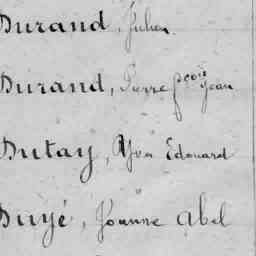 Durand, Julien
Durand, Pierre çois Jean
Dutay, Yves Edouard
Duyé, Jeanne Abel